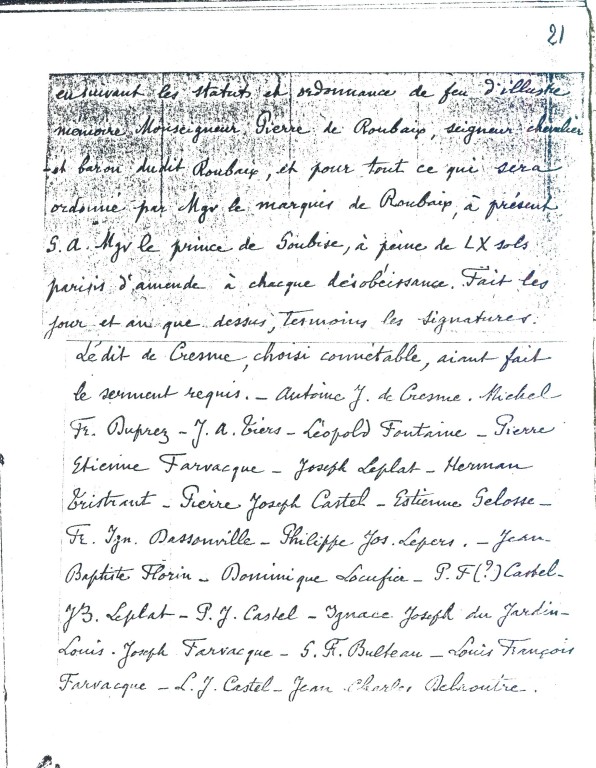 21
ensuivant les statuts et ordonnance de feu d'illustre
mémoire Monseigneur Pierre de Roubaix, seigneur chevalier
et baron dudit Roubaix, et pour tout ce qui sera
ordonné par Mgr le marquis de Roubaix, à présent
S. A. Mgr le prince de Soubise, à peine de LX sols
parisis d'amende à chacque désobéissance. Fait les
jour et an que dessus, Tesmoins les signatures.
Ledit de Cresme, choisi connétable, aiant fait
le serment requis. — Antoine J. de Cresme. Michel
Fr. Duprez — J. A. Tiers — Léopold Fontaine — Pierre
Etienne Farvacque — Joseph Leplat — Herman
Tristrant — Pierre Joseph Castel — Estienne Selosse —
Fr. Ign. Dassonville — Philippe Jos. Lepers. — Jean-
Baptiste Florin — Dominique Locufier — P. F (?) Castel —
J B. Leplat — P. J. Castel — Ignace Joseph du Jardin —
Louis. Joseph Farvacque — S. F. Bulteau — Louis François
Farvacque — L. J. Castel — Jean Charles Delroutre.